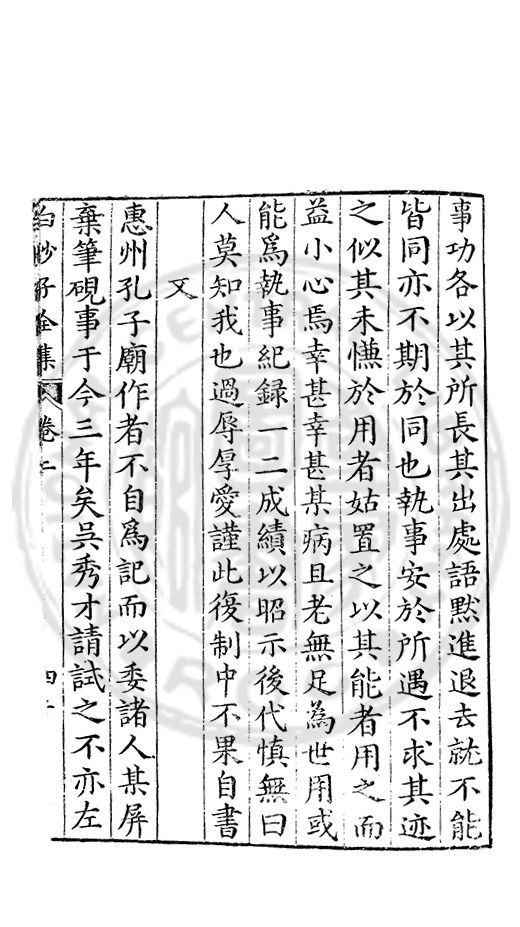 事功各以其所長其出處語默進退去就不能
皆同亦不期於同也執事安於所遇不求其迹
之似其未慊於用者姑置之以其能者用之而
益小心焉幸甚幸甚某病且老無足為世用或
能爲執事紀録一二成績以昭示後代慎無曰
人莫知我也過辱厚愛謹此復制中不果自書
又
惠州孔子廟作者不自爲記而以委諸人某屏
棄筆硯事于今三年矣吳秀才請試之不亦左
白沙子全集 卷二